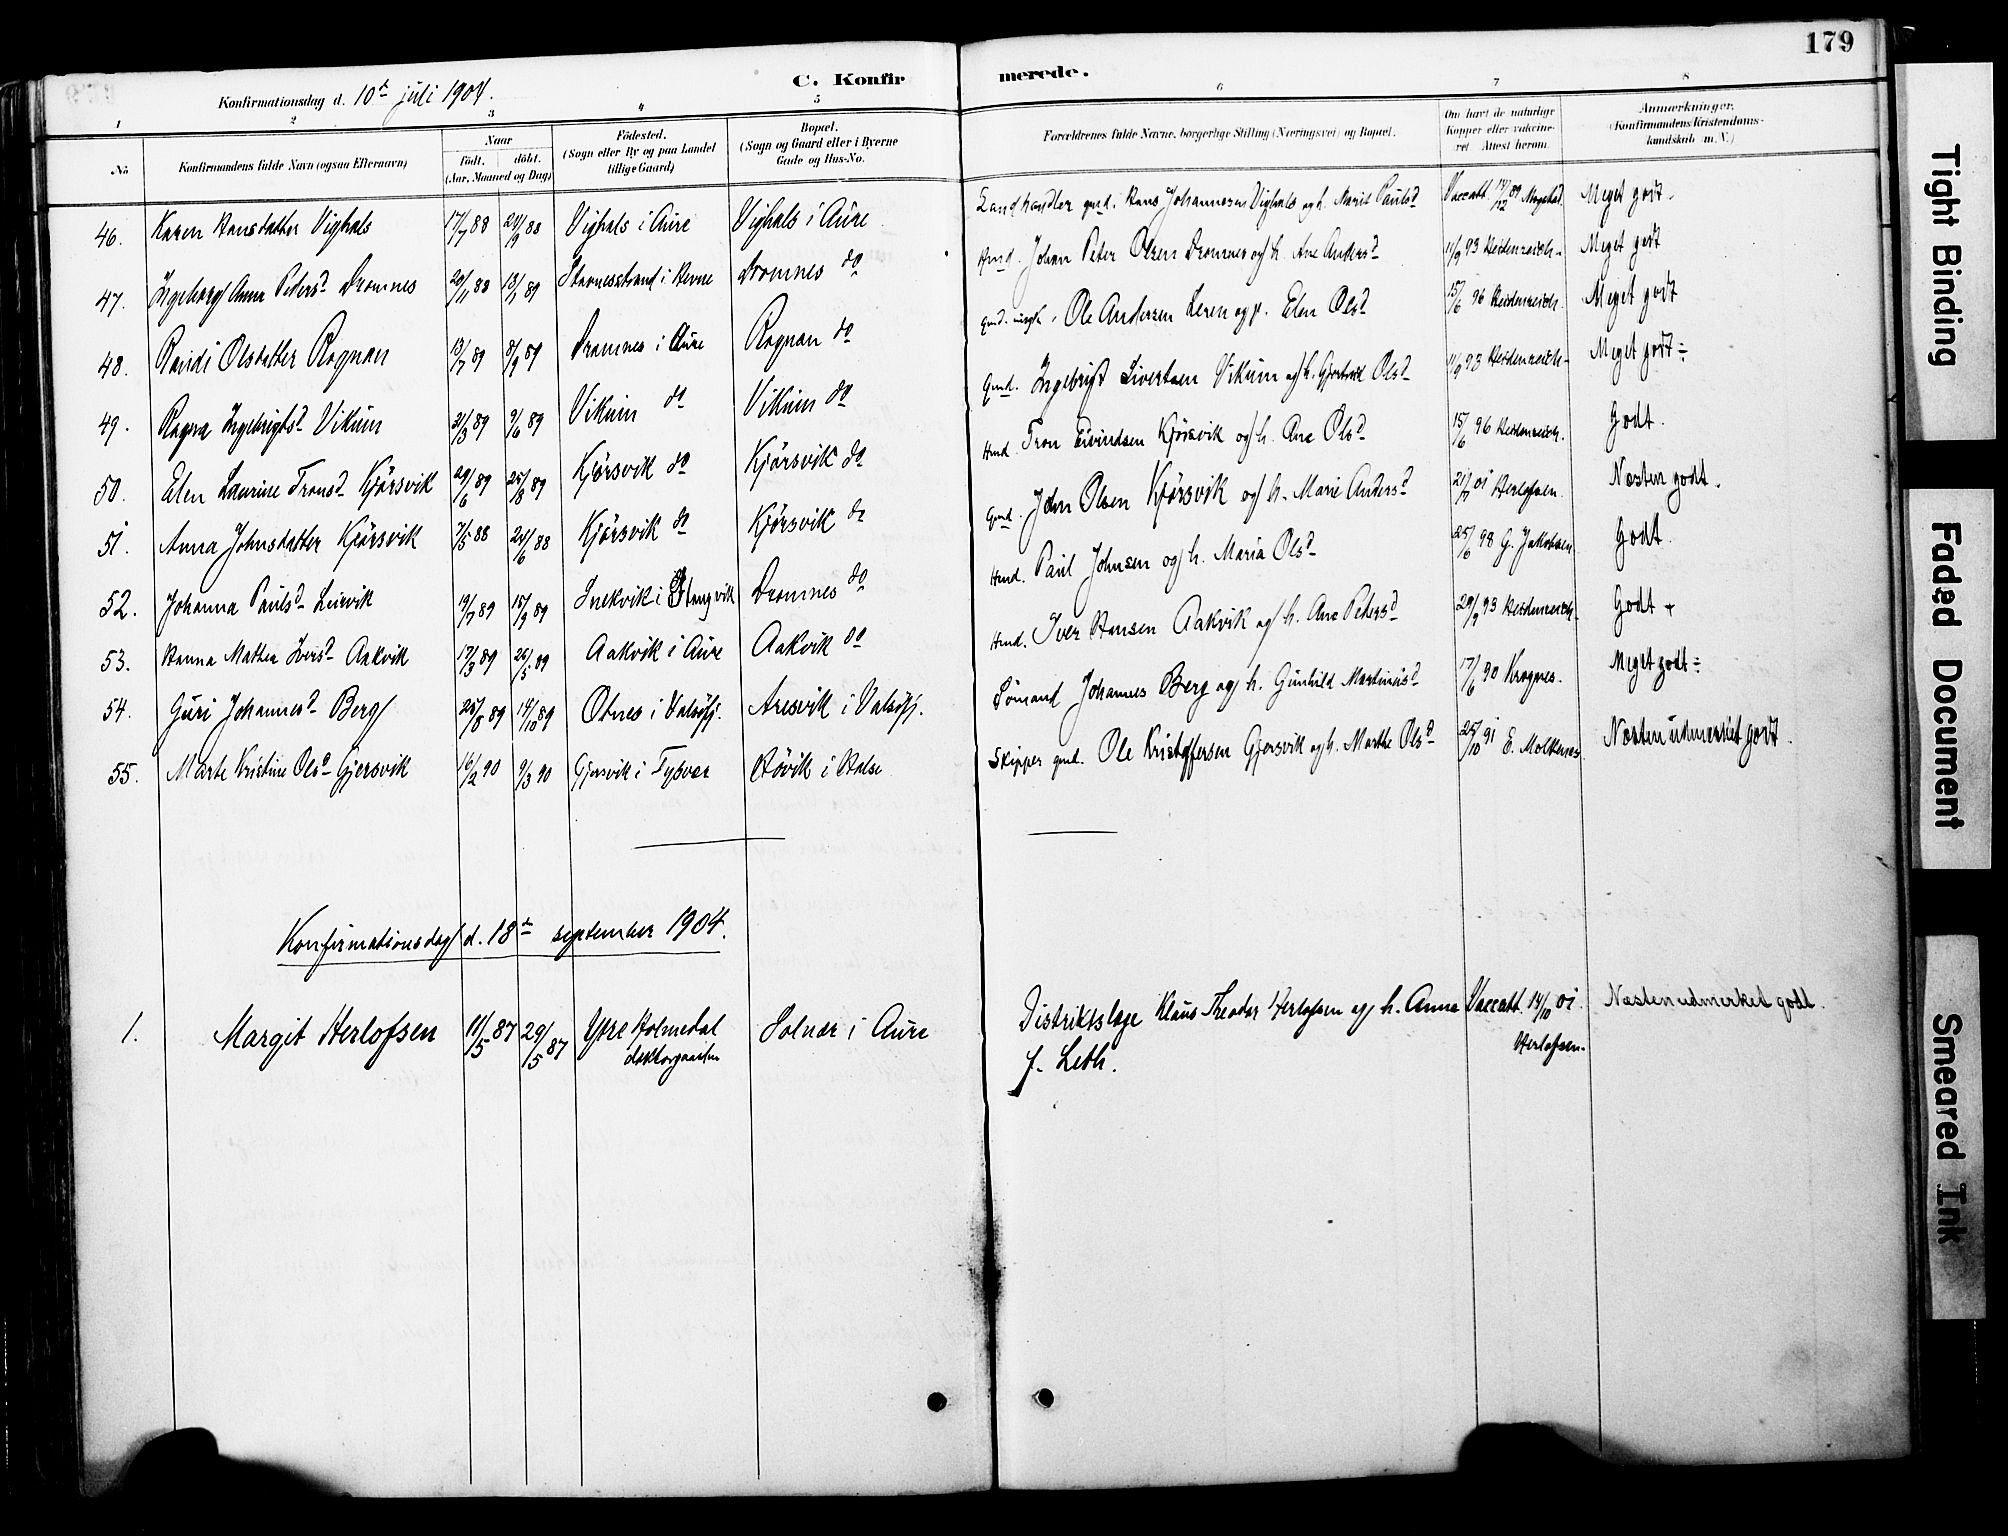 179
C. Konfirmerede.
Konfirmationsdag d. 10de juli 1904.
1 2 3 4 5 6 7 8
No. Konfirmandens fulde Navn (ogsaa Efternavn) Naar født. døbt. (Aar, Maaned og Dag) Fødested. (Sogn eller By og paa Landet tillige Gaard) Bopæl. (Sogn og Gaard eller i Byerne Gade og Hus-No. Forældrenes fulde Navne, borgerlige Stilling (Næringsvei) og Bopæl. Om havt de naturlige Kopper eller vakcineret. Attest herom. Anmærkninger. (Konfirmandens Kristendomskundskab m. V.)
46. Karen Hansdatter Vighals 17/7 88 24/9 88 Vighals i Aure Vighals i Aure Landhandler gmd. Hans Johannesen Vighals og h. Marit Paulsd Vaccatt. 14/12 89 Meget godt.
47. Ingeborg Anna Petersd Dromnes 20/11 88 13/1 89 Stamnesstrand i Hevne Dromnes do Hmd. Johan Peter Olsen Dromnes og h. Ane Andersd 11/9 93 Heidenreich. Meget godt
48. Randi Olsdatter Rognan 13/7 89 8/9 89 Dromnes i Aure Rognan do Ole Andersen og p. Elen Olsd 15/6 96 Heidenreich. Meget godt
49. Ragna Ingebrigtsd Vikum 21/3 89 9/6 89 Vikum do Vikum do Gmd. Ingebrigt Sivertsen Vikum og h. Gjertrud Olsd 11/9 93 Heidenreich. Meget godt ÷
50. Elen Laurine Tronsd Kjørsvik 29/6 89 25/8 89 Kjørsvik do Kjørsvik do Hmd. Tron Eivindsen Kjørsvik og h. Ane Olsd 15/6 96 Heidenreich. Godt.
51. Anna Johnsdatter Kjørsvik 7/5 88 24/6 88 Kjørsvik do Kjørsvik do Gmd. John Olsen Kjørsvik og h. Marie Andersd 01 Herlofsen. Næsten godt.
52. Johanna Paulsd Leirvik 19/7 89 15/9 89 Snekvik i Stangvik Dromnes do Hmd. Paul Johnsen og h. Maria Olsd 25/6 98 G. Jakobsen Godt.
53. Hanna Mathea Iversd Aakvik 17/3 89 26/5 89 Aakvik i Aure Aakvik do Hmd. Iver Hansen Aakvik og h. Ane Petersd 29/9 93 Heidenreich. Godt +
54. Guri Johannesd Berg 25/8 89 14/10 89 Otnes i Valsøfj. Aresvik i Valsøfj. Sømand Johannes Berg og h. Gunhild Martinusd 17/6 90 Krognes. Meget godt ÷
55. Marte Kristine Olsd Gjersvik 16/2 90 9/3 90 Gjersvik i Tysvær Bøvik i Halse Skipper gmd. Ole Kristoffersen Gjersvik og h. Marthe Olsd 25/10 91 E. Molknes Næsten udmerket godt.
Konfirmationsdag d. 18de september 1904.
1. Margit Herlofsen 11/5 87 29/5 87 Ytre Holmedal doktorgaarden Solvær i Aure Distriktslæge Klaus Theodor Herlofsen og h. Anna f. Leth. Vaccatt. 14/10 01 Herlofsen. Næsten udmerket godt.
Tight Binding
Faded Document
Smeared Ink